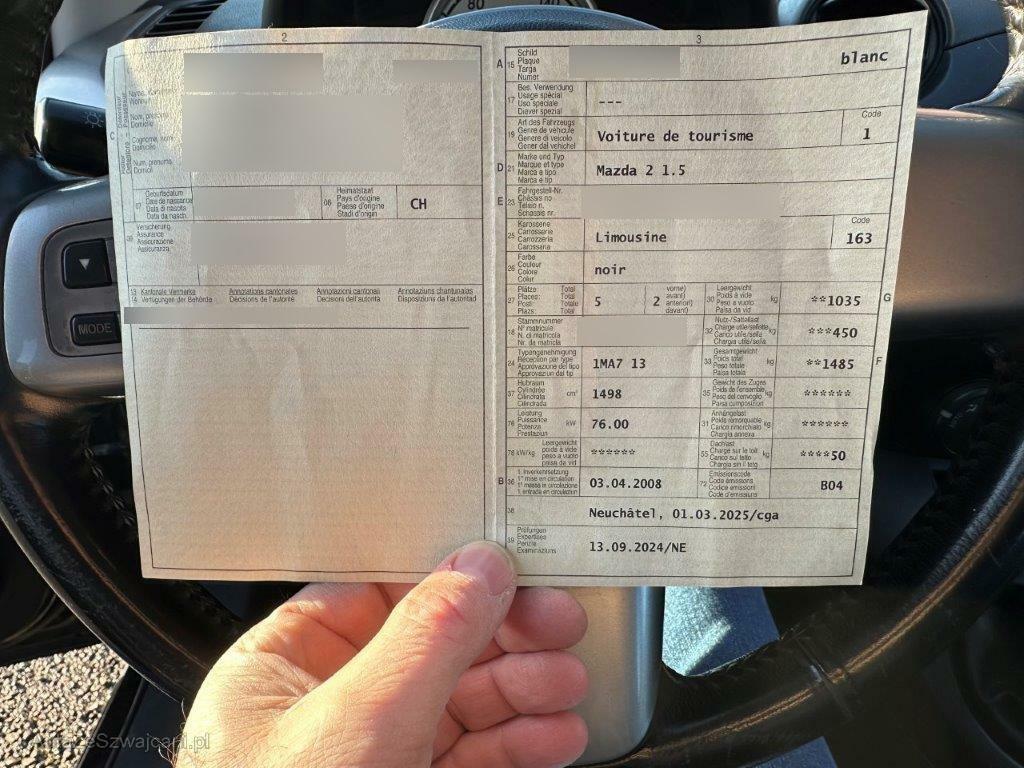 80 140
2
Name, Vornamen
Nom, prénoms
Domicile
Cognome, nomi
Domicilio
Num, prenoms
Domicil
C
07
Geburtsdatum
Date de naissance
Data di nascita
Data da nasch.
06
Heimatstaat
Pays d'origine
Paese d'origine
Stadi d'origin
CH
Versicherung
Assurance
Assicurazione
Assicuranza
13 Kantonale Vermerke
14 Verfügungen der Behörde
Annotations cantonales
Décisions de l'autorité
Annotazioni cantonali
Decisioni dell'autorità
Annotaziuns chantunalas
Disposiziuns da l'autoritad
3
A 15
Schild
Plaque
Targa
Numer
blanc
17
Bes. Verwendung
Usage spécial
Uso speciale
Diever spezial
---
19
Art des Fahrzeugs
Genre de véhicule
Genere di veicolo
Gener dal vehichel
Voiture de tourisme
Code
1
D 21
Marke und Typ
Marque et type
Marca e tipo
Marca e tip
Mazda 2 1.5
E 23
Fahrgestell-Nr.
Châssis no
Telaio n.
Schassis nr.
25
Karosserie
Carrosserie
Carrozzeria
Carossaria
Limousine
Code
163
26
Farbe
Couleur
Colore
Colur
noir
27
Plätze: Total
Places: Total
Posti: Totale
Plazs: Total
5
2
vorne)
avant)
anteriori)
davant)
30
Leergewicht
Poids à vide
Peso a vuoto
Paisa da vid
kg
**1035
G
18
Stammnummer
N° matricule
N. di matricola
Nr. da matricla
32
Nutz-/Sattellast
Charge utile/sellette
Carico utile/sella
Chargia utila/sella
kg
***450
24
Typengenehmigung
Réception par type
Approvazione del tipo
Approvaziun dal tip
1MA7 13
33
Gesamtgewicht
Poids total
Peso totale
Paisa totala
kg
**1485
F
37
Hubraum
Cylindrée
Cilindrata
Cilindrada
cm³
1498
35
Gewicht des Zuges
Poids de l'ensemble
Peso del convoglio
Paisa cumposiziun
kg
******
76
Leistung
Puissance
Potenza
Prestaziun
kW
76.00
31
Anhängelast
Poids remorquable
Carico rimorchiato
Chargia annexa
kg
******
78 kW/kg
Leergewicht
poids à vide
peso a vuoto
paisa da vid
******
55
Dachlast
Charge sur le toit
Carico sul tetto
Chargia sin il tetg
kg
****50
B 36
1. Inverkehrsetzung
1re mise en circulation
1a messa in circolazione
1. entrada en circulaziun
03.04.2008
72
Emissionscode
Code émissions
Codice emissioni
Code d'emissiuns
B04
38
Neuchâtel, 01.03.2025/cga
39
Prüfungen
Expertises
Perizie
Examinaziuns
13.09.2024/NE
MODE
SzwajcaniSzwajcarii.pl